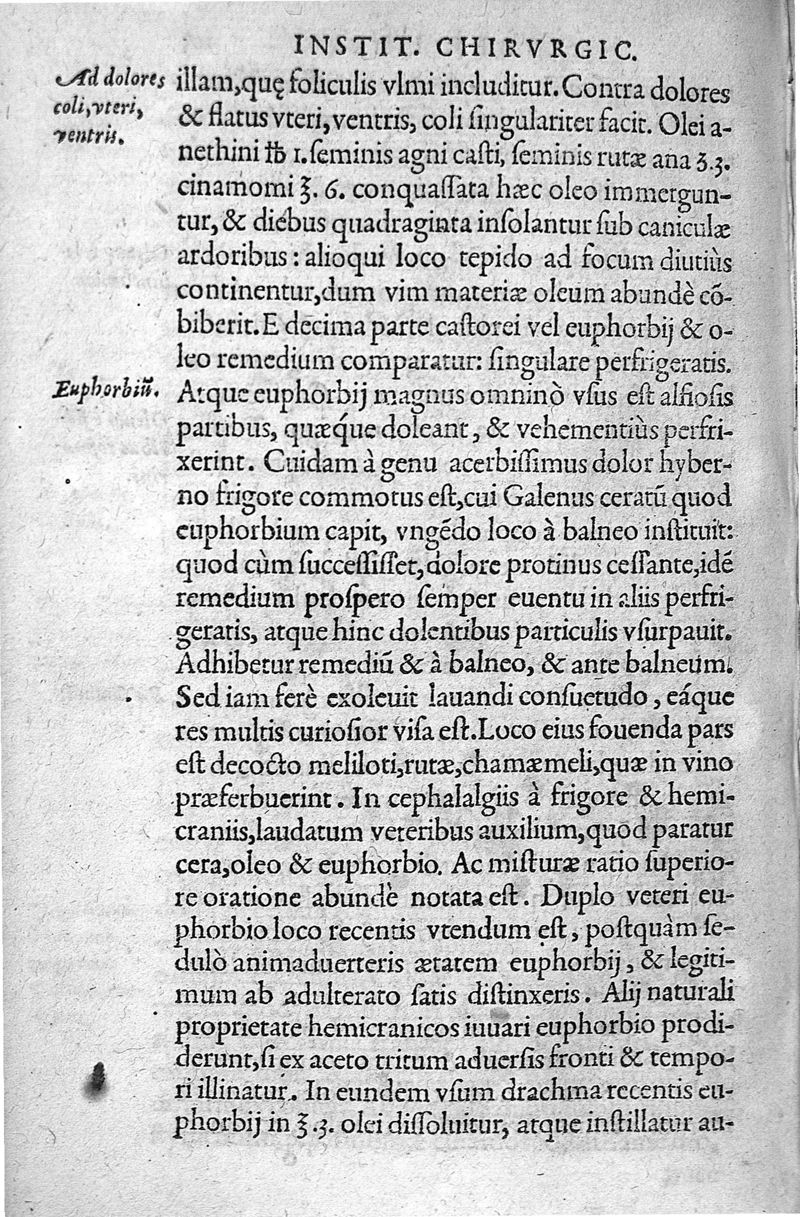 INSTIT. CHIRVRGIC.
Ad dolores
coli, vteri,
ventris.
illam, quę foliculis vlmi includitur. Contra dolores
& flatus vteri, ventris, coli ſingulariter facit. Olei a-
nethini ℔ 1. ſeminis agni caſti, ſeminis rutæ ana ʒ.3.
cinamomi ℥. 6. conquaſſata hæc oleo immergun-
tur, & diebus quadraginta inſolantur ſub caniculæ
ardoribus: alioqui loco tepido ad focum diutiùs
continentur, dum vim materiæ oleum abundè cō-
biberit. E decima parte caſtorei vel euphorbij & o-
leo remedium comparatur: ſingulare perfrigeratis.
Euphorbiū.
Atque euphorbij magnus omninò vſus eſt alſioſis
partibus, quæq́ue doleant, & vehementiùs perfri-
xerint. Cuidam à genu acerbiſſimus dolor hyber-
no frigore commotus eſt, cui Galenus ceratū quod
euphorbium capit, vngēdo loco à balneo inſtituit:
quod cùm ſucceſſiſſet, dolore protinus ceſſante, idē
remedium proſpero ſemper euentu in aliis perfri-
geratis, atque hinc dolentibus particulis vſurpauit.
Adhibetur remediū & à balneo, & ante balneum.
Sed iam ferè exoleuit lauandi conſuetudo, eáque
res multis curioſior viſa eſt. Loco eius fouenda pars
eſt decocto meliloti, rutæ, chamæmeli, quæ in vino
præferbuerint. In cephalalgiis à frigore & hemi-
craniis, laudatum veteribus auxilium, quod paratur
cera, oleo & euphorbio. Ac miſturæ ratio ſuperio-
re oratione abundè notata eſt. Duplo veteri eu-
phorbio loco recentis vtendum eſt, poſtquàm ſe-
dulò animaduerteris ætatem euphorbij, & legiti-
mum ab adulterato ſatis diſtinxeris. Alij naturali
proprietate hemicranicos iuuari euphorbio prodi-
derunt, ſi ex aceto tritum aduerſis fronti & tempo-
ri illinatur. In eundem vſum drachma recentis eu-
phorbij in ℥.3. olei diſſoluitur, atque inſtillatur au-